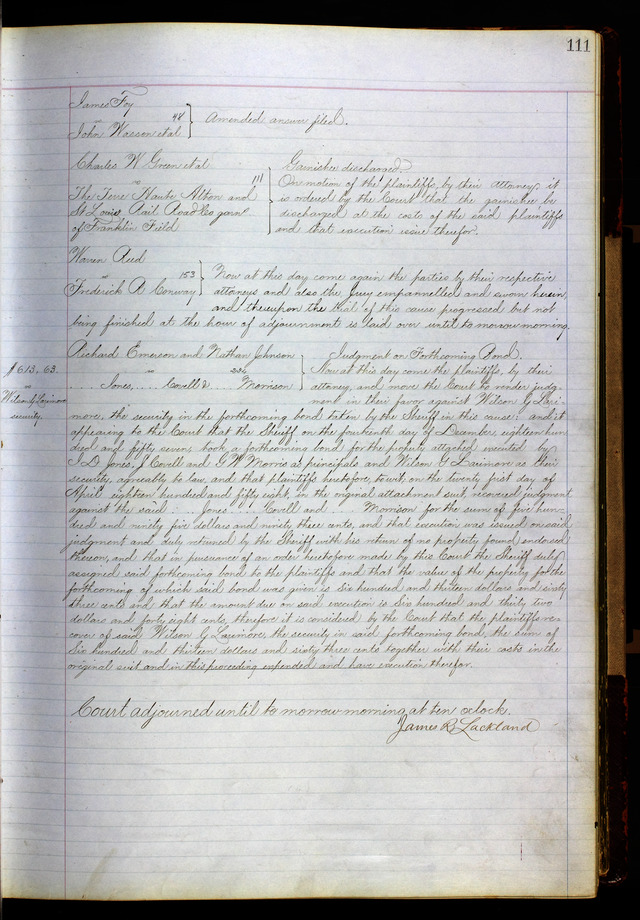 111
James Foy
vs 48 Amended answer filed.
John Wasson et al
Charles W Green et al Garnishee discharged.
vs 111 On motion of the plaintiffs, by their attorney it
The Terre Haute Alton and is ordered by the Court that the garnishee be
St Louis Rail Road Co garns discharged at the costs of the said plaintiffs
of Franklin Field and that execution issue therefor.
Warren Reed
vs 153 Now at this day come again the parties by their respective
Frederick A Conway attorneys and also the jury empannelled and sworn herein,
and thereupon the trial of this cause progressed but not
being finished at the hour of adjournment is laid over until to morrow morning.
Richard Emerson and Nathan Johnson Judgment on Forthcoming Bond.
$613.63. vs Now at this day come the plaintiffs, by their
Jones, Covell & Morrison attorney, and move the Court to render judg-
vs
Wilson G Larimore ment in their favor against Wilson G Lari-
security.
more, the security in the forthcoming bond taken by the Sheriff in this cause: and it
appearing to the Court that the Sheriff on the fourteenth day of December, eighteen hun
dred and fifty seven, took a forthcoming bond for the property attached executed by
S D Jones, J Covell and G W Morris as principals and Wilson G Larimore as their
security, agreeably to law, and that plaintiffs heretofore, to wit, on the twenty first day of
April eighteen hundred and fifty eight, in the original attachment suit recovered judgment
against the said Jones Covell and Morrison for the sum of five hun-
dred and ninety five dollars and ninety three cents, and that execution was issued on said
judgment and duly returned by the Sheriff with his return of no property found endorsed
thereon, and that in pursuance of an order heretofore made by this Court the Sheriff duly
assigned said forthcoming bond to the plaintiffs and that the value of the property for the
forthcoming of which said bond was given is Six hundred and thirteen dollars and sixty
three cents and that the amount due on said execution is Six hundred and thirty two
dollars and forty eight cents, therefore it is considered by the Court that the plaintiffs re-
cover of said Wilson G Larimore, the security in said forthcoming bond, the sum of
Six hundred and thirteen dollars and sixty three cents together with their costs in the
original suit and in this proceeding expended and have execution therefor.
Court adjourned until to morrow morning at ten oclock.
James R Lackland